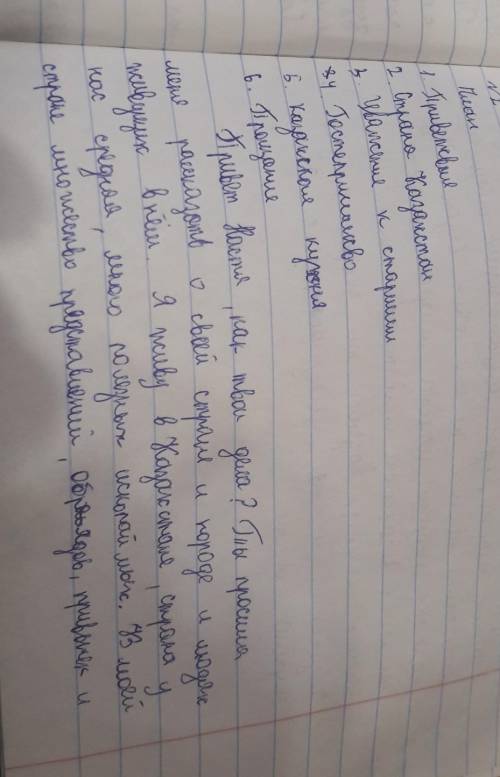 №2
План
1. Приветствие
2. Страна Казахстан
3. Уважение к старшим
4 Гостеприимство
5. Казахская кухня
6. Прощание
Привет Настя, как твои дела? Ты просила
меня рассказать о своей стране и народе и людях
живущих в нём. Я живу в Казахстане, страна у
нас средняя, много полезных ископаймых. Уз моей
стране множество представлений, обрядов, привычек и